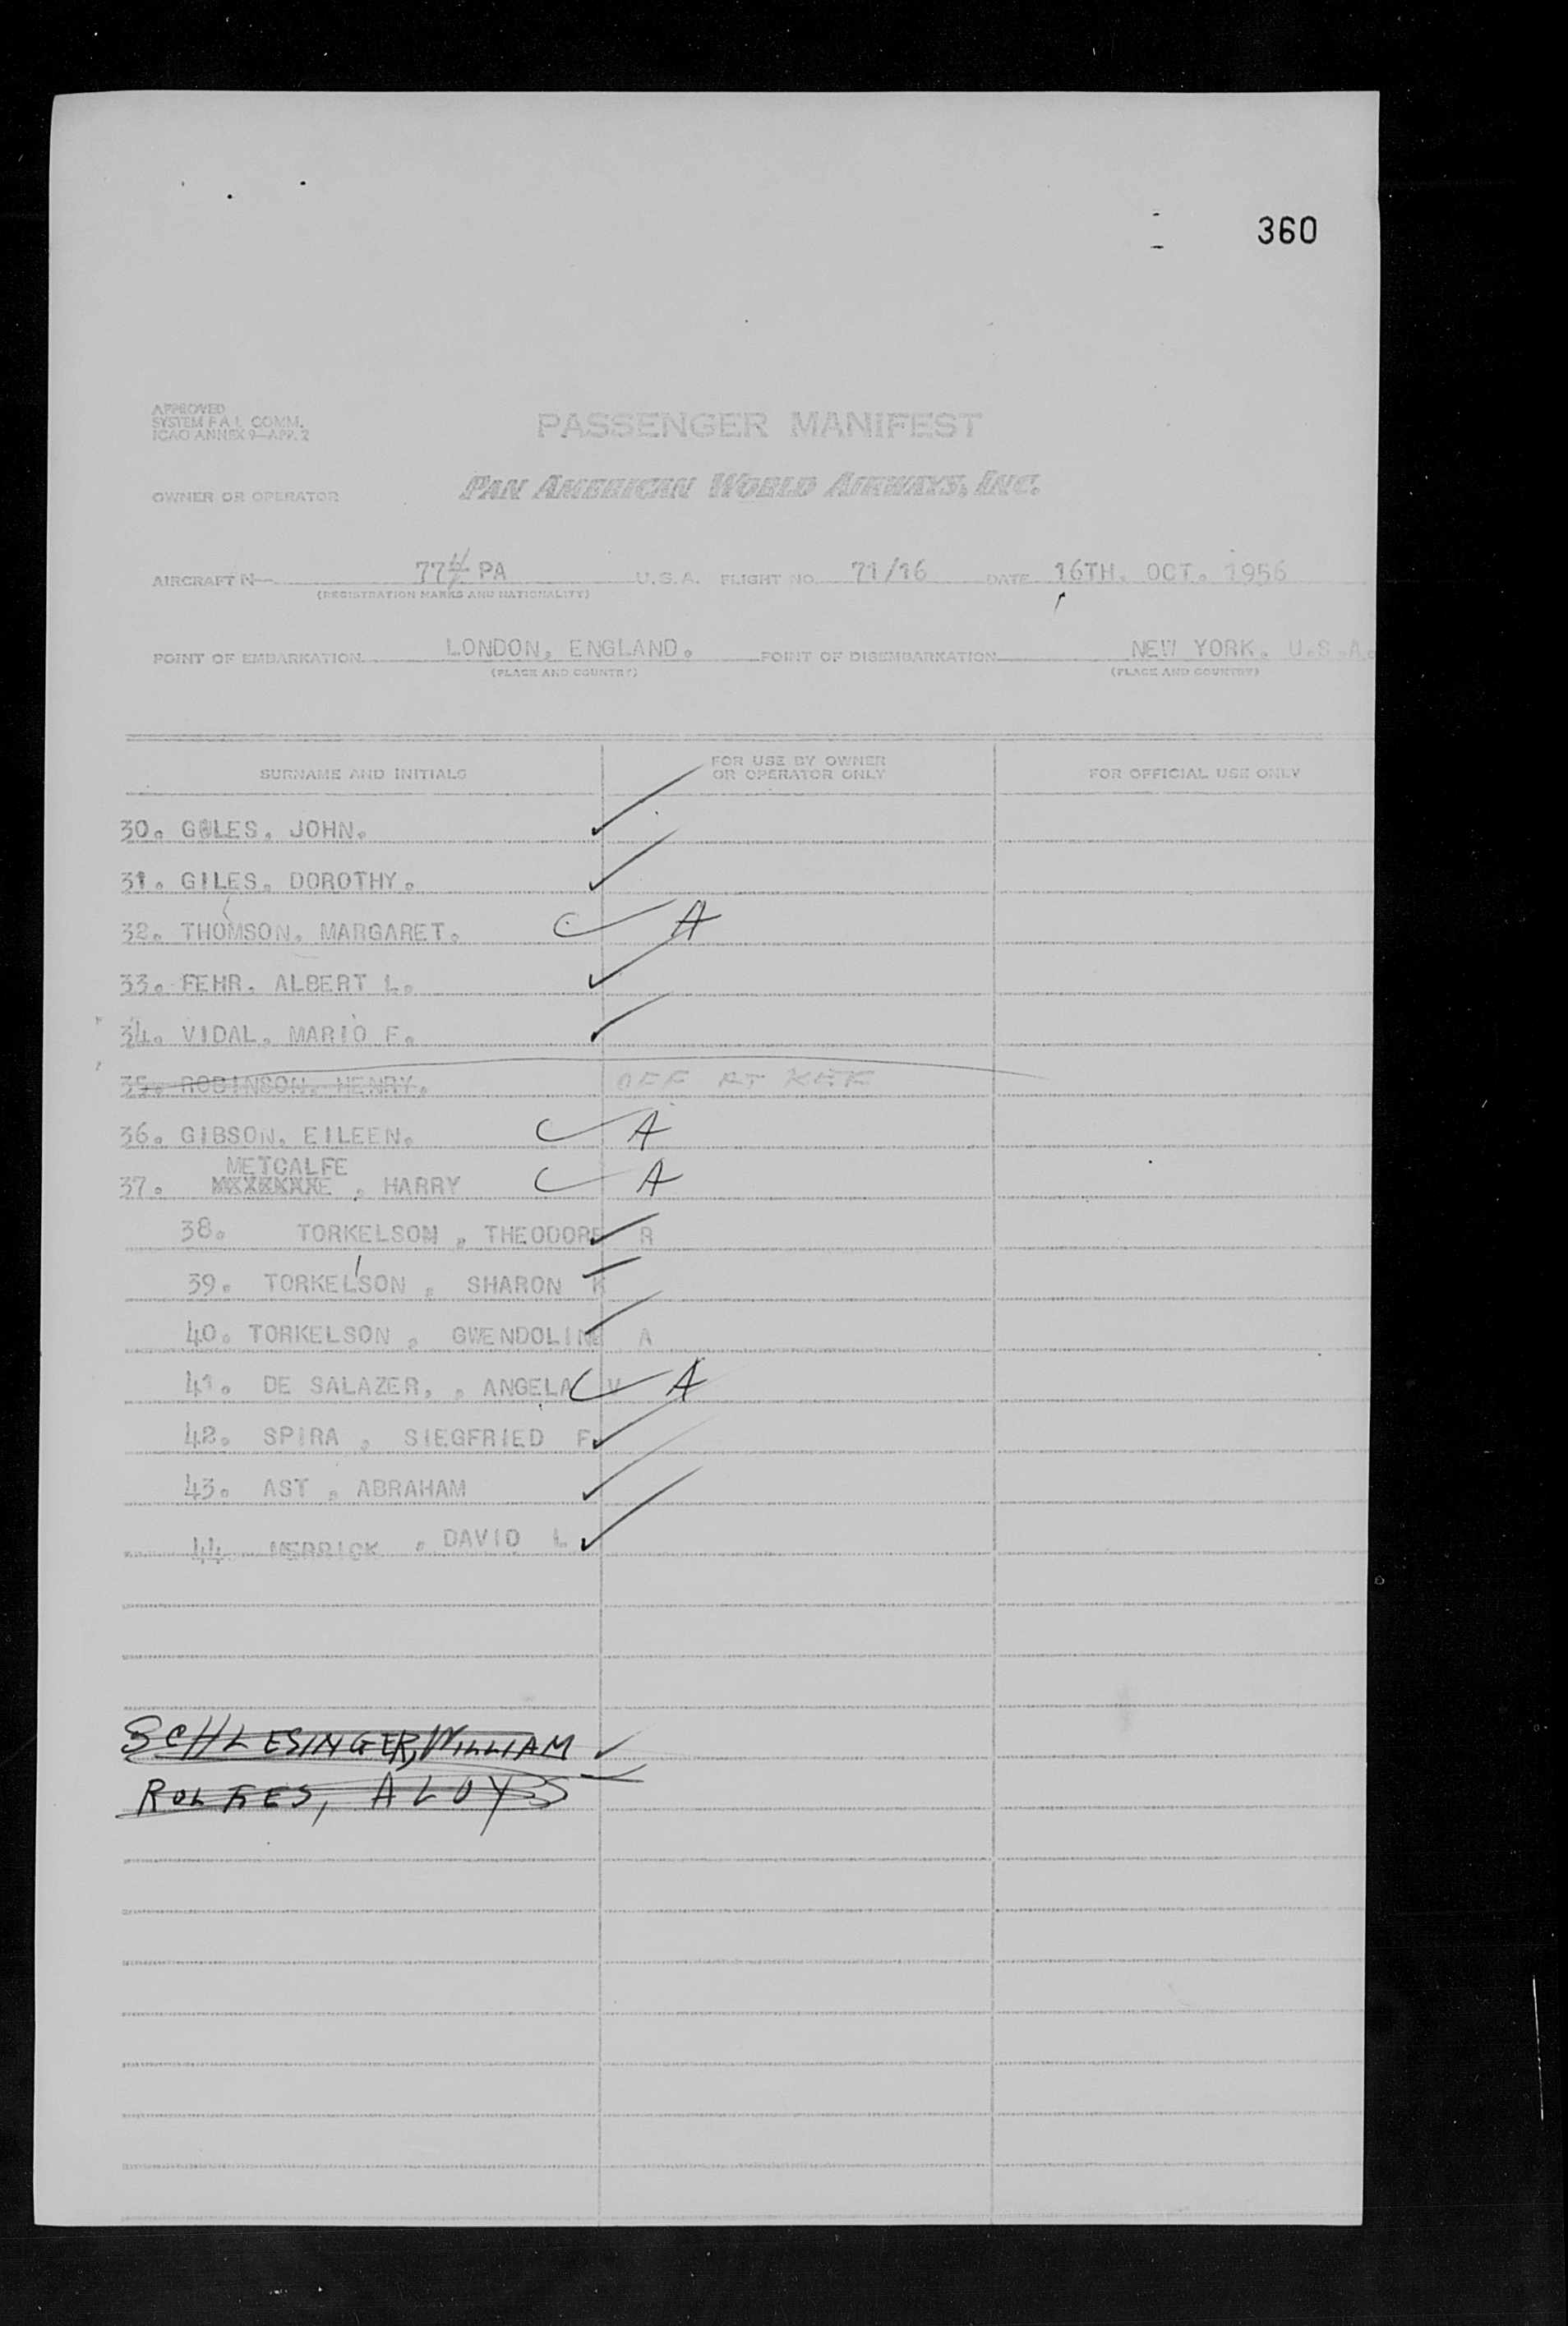 360
APPROVED
SYSTEM F.A.L. COMM.
ICAO ANNEX 9—APP. 2
PASSENGER MANIFEST
OWNER OR OPERATOR PAN AMERICAN WORLD AIRWAYS, INC.
AIRCRAFT N 77 PA U.S.A. FLIGHT NO. 71/16 DATE 16TH. OCT. 1956
(REGISTRATION MARKS AND NATIONALITY)
POINT OF EMBARKATION LONDON, ENGLAND. POINT OF DISEMBARKATION NEW YORK. U.S.A.
(PLACE AND COUNTRY) (PLACE AND COUNTRY)
SURNAME AND INITIALS FOR USE BY OWNER OR OPERATOR ONLY FOR OFFICIAL USE ONLY
30. JOHN.
31. GILES. DOROTHY.
32. THOMSON. MARGARET. A
33. FEHR. ALBERT L.
34. VIDAL. MARIO F.
35. ROBINSON. HENRY. OFF AT KEF
36. GIBSON. EILEEN. A
METCALFE
37. , HARRY A
38. TORKELSON , THEODORE R
39. TORKELSON , SHARON K
40. TORKELSON , GWENDOLINE A
41. DE SALAZER, , ANGELA V A
42. SPIRA , SIEGFRIED F.
43. AST , ABRAHAM
44 MERRICK , DAVID L
SCHLESINGER, WILLIAM
ALOYS